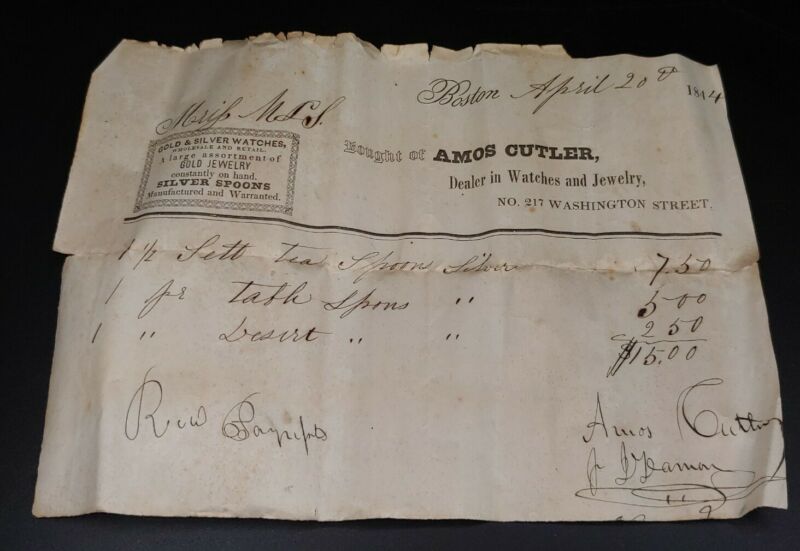 Boston April 20th 1844
Miss M L S.
GOLD & SILVER WATCHES,
WHOLESALE AND RETAIL.
A large assortment of
GOLD JEWELRY
constantly on hand.
SILVER SPOONS
Manufactured and Warranted.
Bought of AMOS CUTLER,
Dealer in Watches and Jewelry,
NO. 217 WASHINGTON STREET.
1 Sett tea Spoons Silver 7.50
1 pr table Spons " 5.00
1 " Desert " " 2.50
$15.00
Recd Payment
Amos Cutler